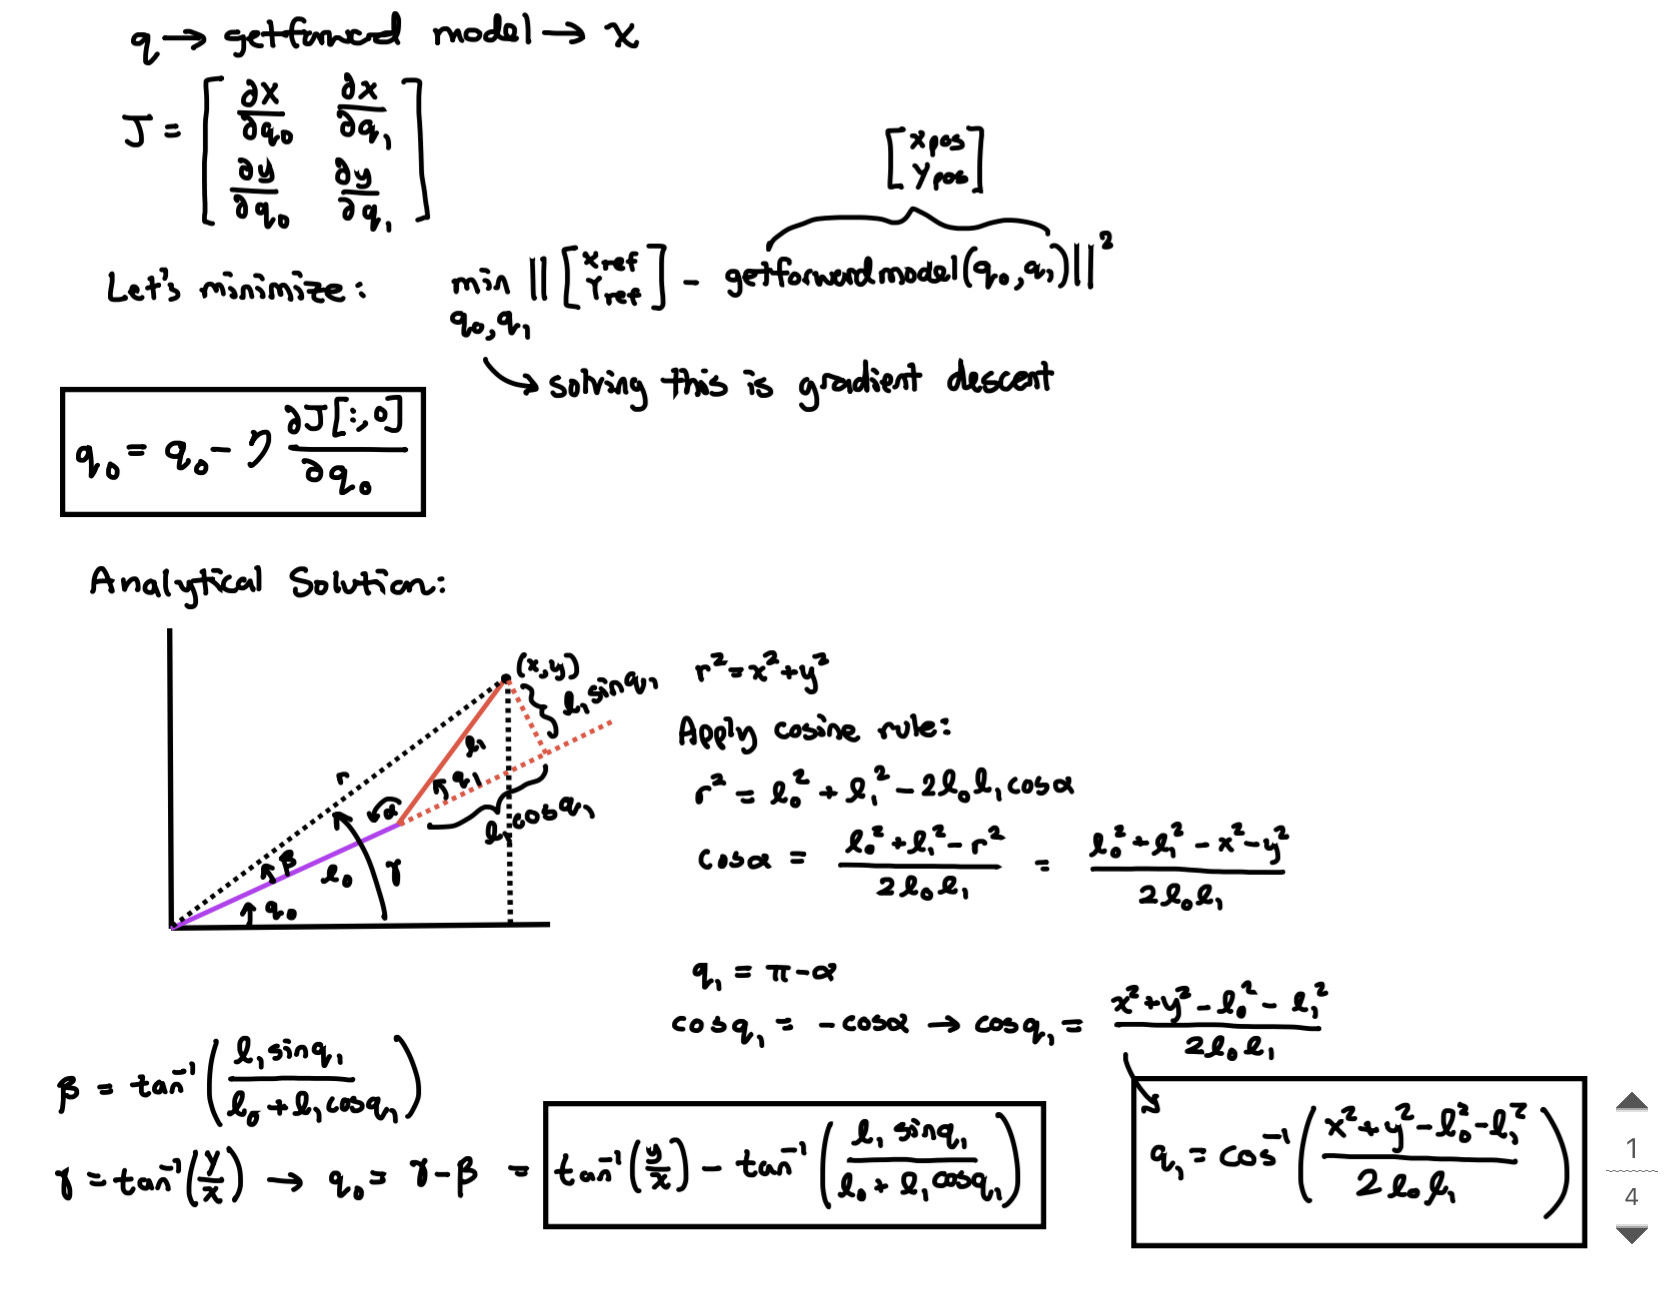 q → getforward model → x
J = [ ∂x/∂q₀ ∂x/∂q₁
∂y/∂q₀ ∂y/∂q₁ ]
[ xpos
ypos ]
Let's minimize: min q₀,q₁ || [ xref Yref ] - getforwardmodel(q₀,q₁) ||²
solving this is gradient descent
q₀ = q₀ - η ∂J[:,0]/∂q₀
Analytical Solution:
(x,y)
l₁ sinq₁
r
l₁
q₁
α
l₁ cosq₁
β
l₀
γ
q₀
r² = x² + y²
Apply cosine rule:
r² = l₀² + l₁² - 2l₀l₁cosα
cosα = (l₀² + l₁² - r²)/(2l₀l₁) = (l₀² + l₁² - x² - y²)/(2l₀l₁)
q₁ = π - α
cosq₁ = -cosα → cosq₁ = (x² + y² - l₀² - l₁²)/(2l₀l₁)
q₁ = cos⁻¹((x² + y² - l₀² - l₁²)/(2l₀l₁))
β = tan⁻¹(l₁sinq₁/(l₀ + l₁cosq₁))
γ = tan⁻¹(y/x) → q₀ = γ - β = tan⁻¹(y/x) - tan⁻¹(l₁ sinq₁/(l₀ + l₁cosq₁))
1
4